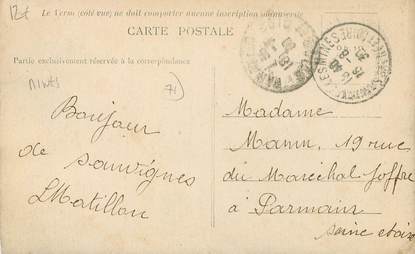 12€
Le Verso (côté vue) ne doit comporter aucune inscription
CARTE POSTALE
Partie exclusivement réservée à la correspondance
71
Bonjour
de sauvignes
LMatillon
Madame
Mamn, 19 rue
du Maréchal Joffre
à Parmain
Seine et oise